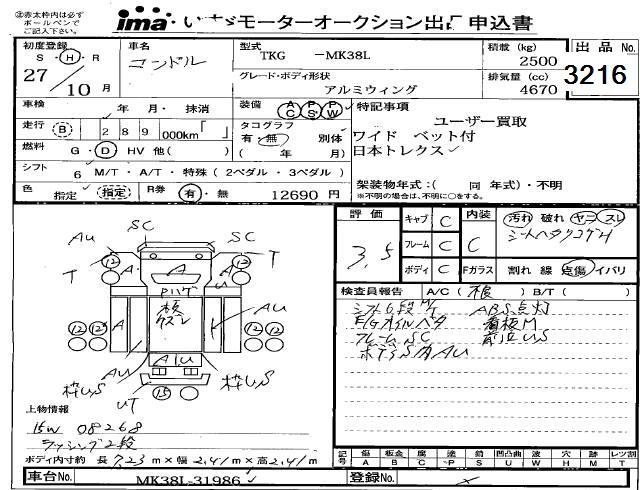 ㊟赤太枠内は必ず
ボールペンで
ご記入下さい。
ima いすゞモーターオークション出品申込書
初度登録
S・H・R
27/10月
車名
コンドル
型式
TKG -MK38L
グレード・ボディ形状
アルミウィング
積載(kg)
2500
排気量(cc)
4670
出品No.
3216
車検 年 月・抹消
走行 B 289 000km「 」
燃料 G・D HV 他( )
シフト 6 M/T・A/T・特殊(2ペダル・3ペダル)
色 指定 指定
R券 有・無 12690円
装備 AC PS PW
タコグラフ
有・無 別体
( 年 月)
特記事項
ユーザー買取
ワイド ベット付
日本トレクス
架装物年式:( 同 年式)・不明
※不明の場合は、不明に○をする。
評価
3.5
キャブ C
フレーム C
ボディ C
内装
C
Fガラス
汚れ 破れ ヤニ スレ
割れ 線 点傷 イバリ
検査員報告 A/C( 根 ) B/T( )
シフト6段M/T ABS点灯
E/Gオイルヘタ 看板M
フレームSC
ボデーS方AU
AU
SC
SC
T
T
12
12
A
A
U
Pハゲ
A
AU
12
12
12
12
AU
AU
枠US
枠US
UT
15
上物情報
15W 08268
ラッシング2段
ボディ内寸約 長 723 m×幅 2.41 m×高 2.41 m
記号
傷 A
板金 B
腐 C
塗 P
錆 S
凹凸曲 U
波 W
穴 H
跡 M
レツ割 T
車台No. MK38L-31986
登録No.